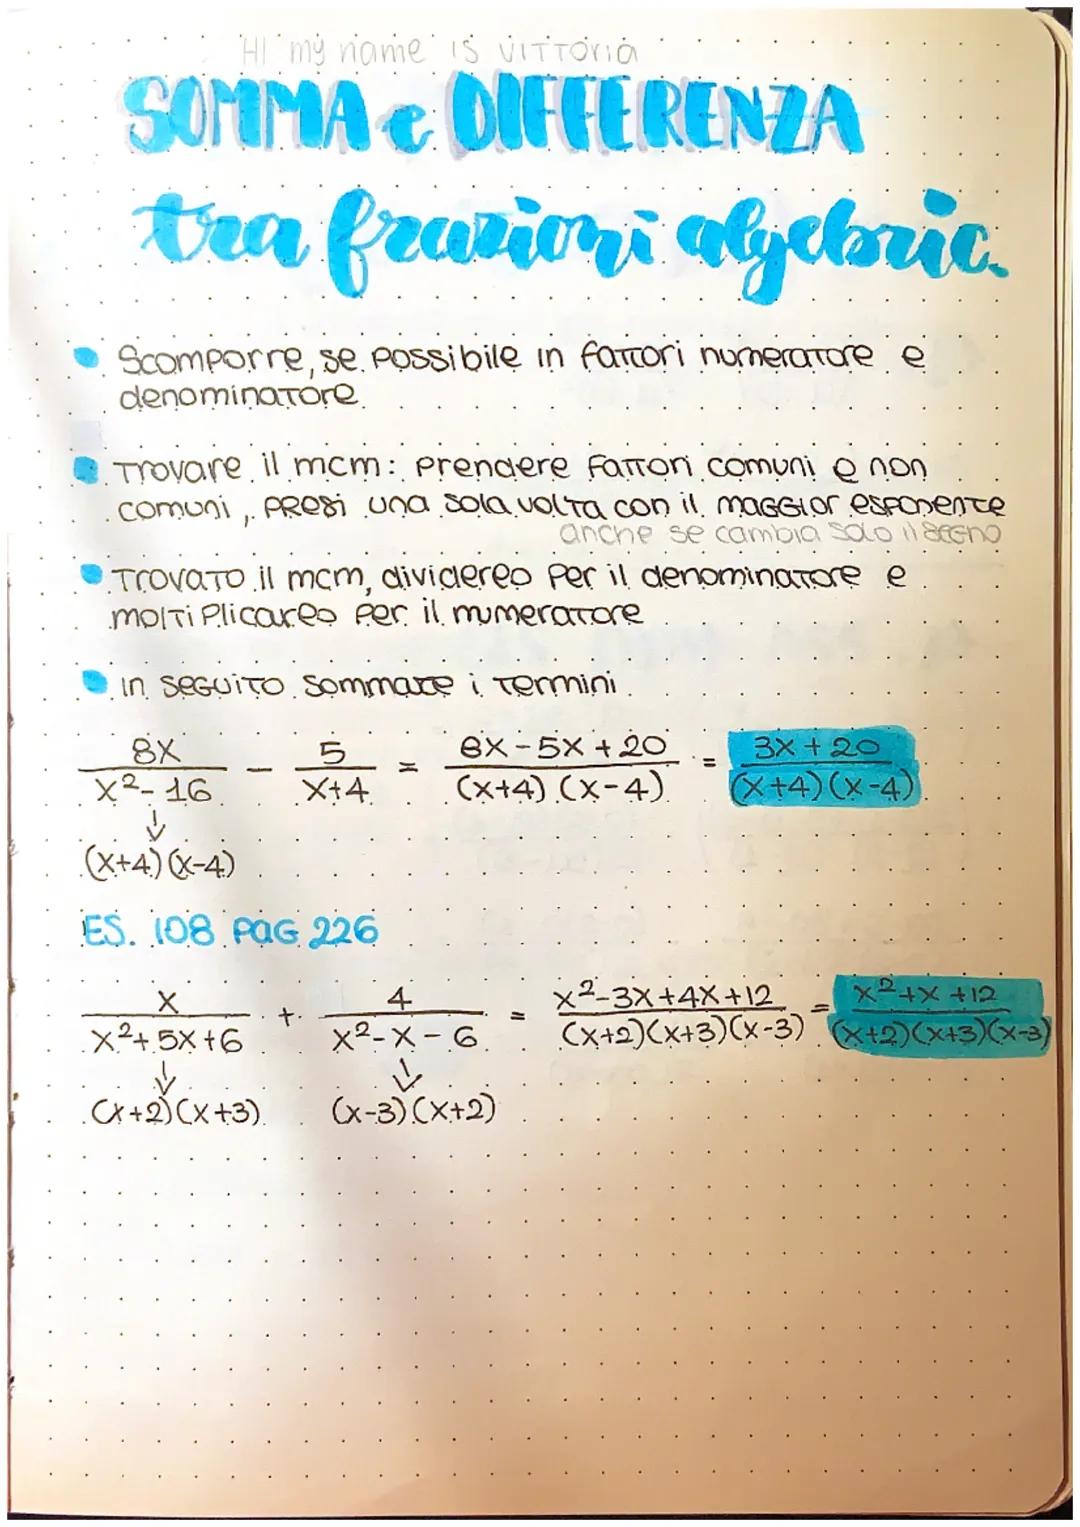 Hi my name is Vittoria
SOMMA e DIFFERENZA
tra frazioni algebric.
Scomporre, se possibile in fattori numeratore e
denominatore.
Trovare il mcm: prendere fattori comuni e non
comuni, presi una sola volta con il maggior esponente
anche se cambia solo il segno
Trovato il mcm, dividereo per il denominatore e
moltiplicareo per il numeratore
in seguito sommare i termini
8x/(x²-16) - 5/(x+4) = (8x-5x+20)/((x+4)(x-4)) = (3x+20)/((x+4)(x-4))
↓
(x+4)(x-4)
ES. 108 PAG 226
x/(x²+5x+6) + 4/(x²-x-6) = (x²-3x+4x+12)/((x+2)(x+3)(x-3)) = (x²+x+12)/((x+2)(x+3)(x-3))
↓ ↓
(x+2)(x+3) (x-3)(x+2)